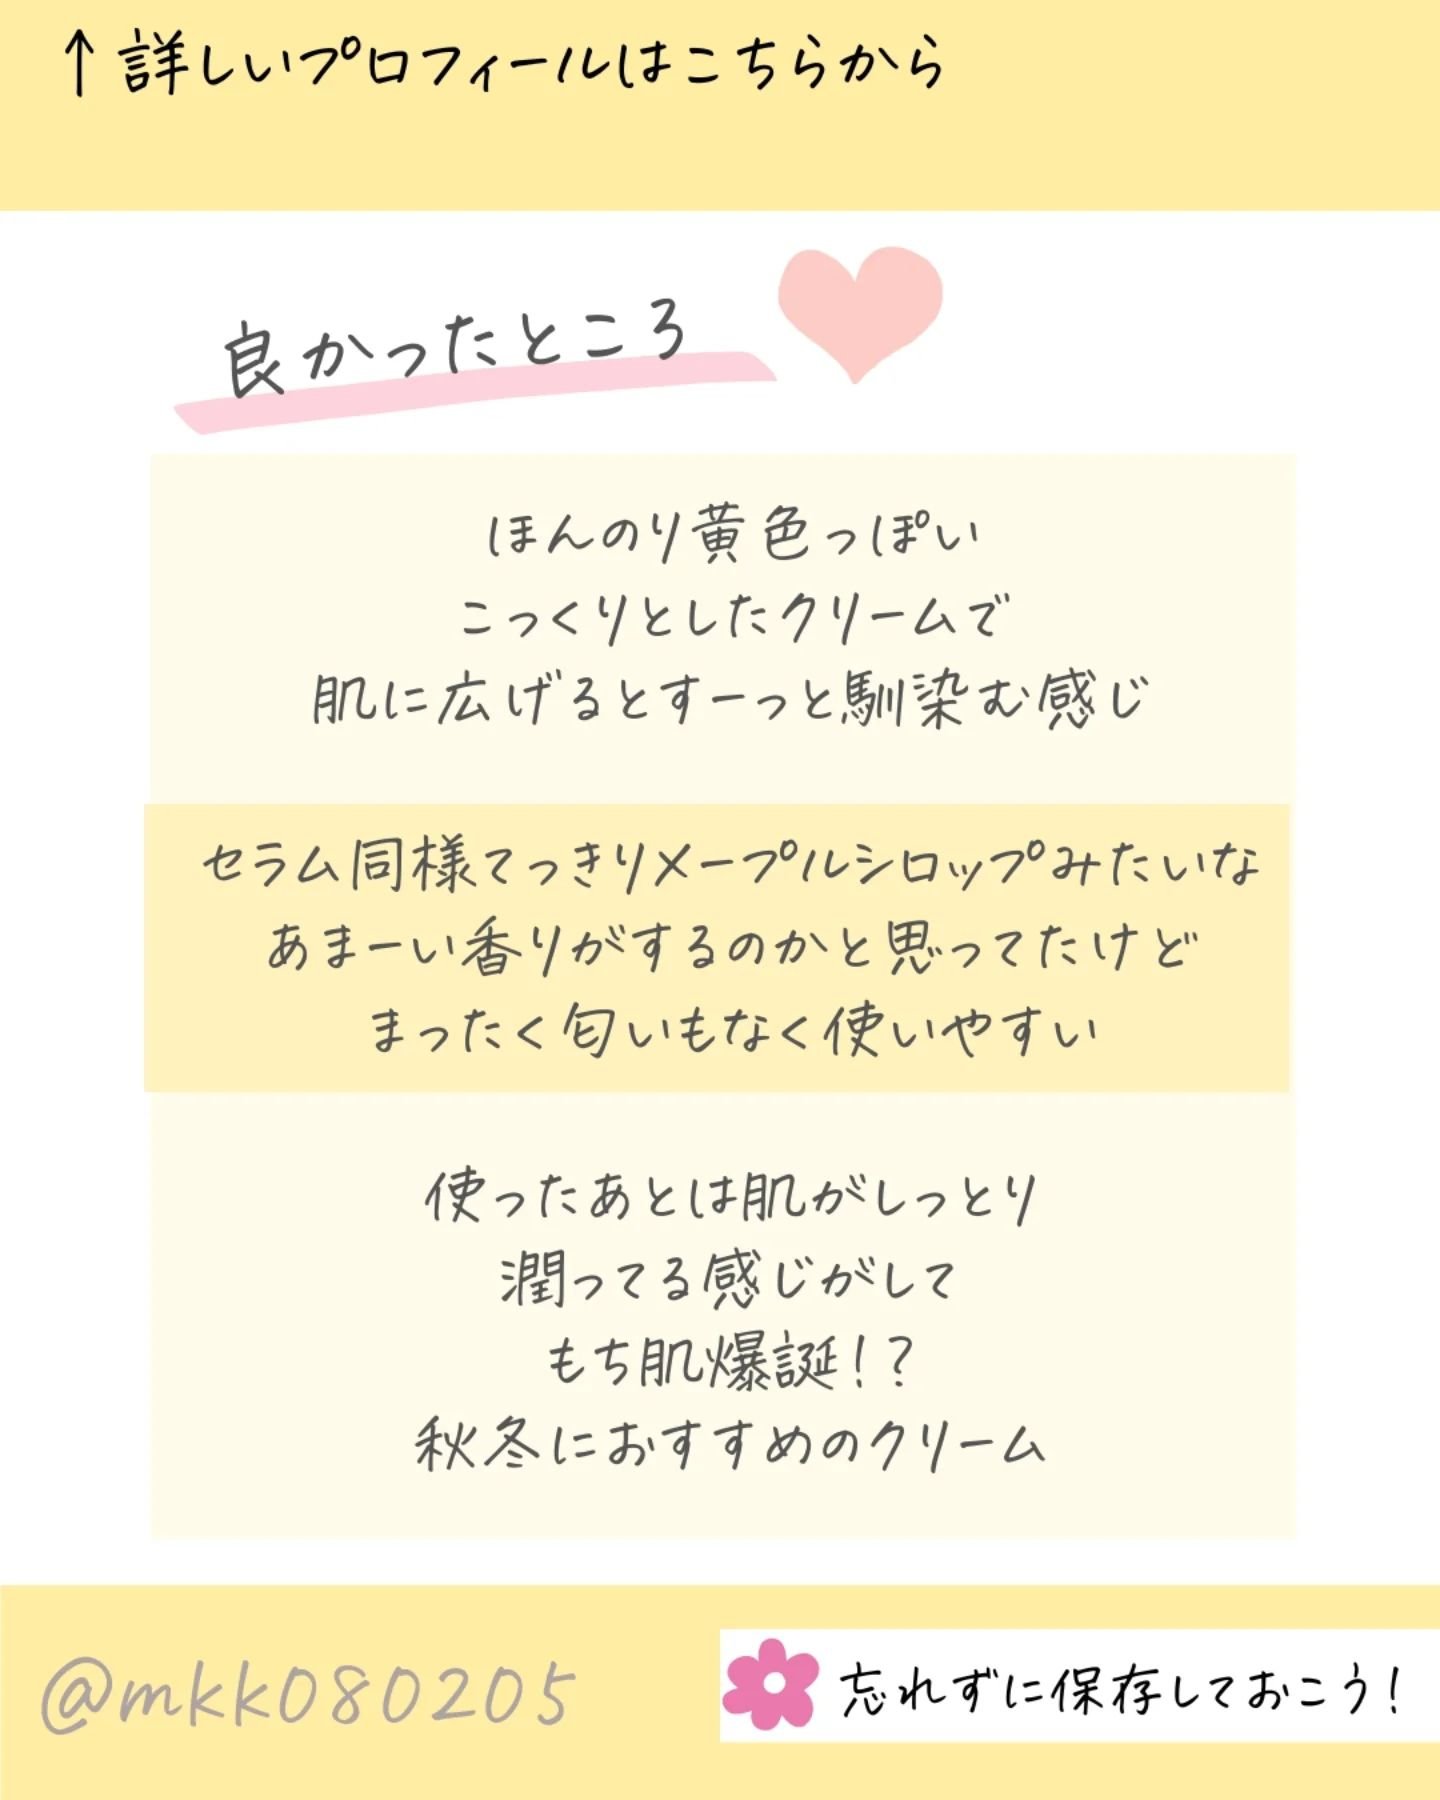 ↑詳しいプロフィールはこちらから
良かったところ
ほんのり黄色っぽい
こっくりとしたクリームで
肌に広げるとすーっと馴染む感じ
セラム同様てっきりメープルシロップみたいな
あまーい香りがするのかと思ってたけど
まったく匂いもなく使いやすい
使ったあとは肌がしっとり
潤ってる感じがして
もち肌爆誕!?
秋冬におすすめのクリーム
@mkk080205
忘れずに保存しておこう!